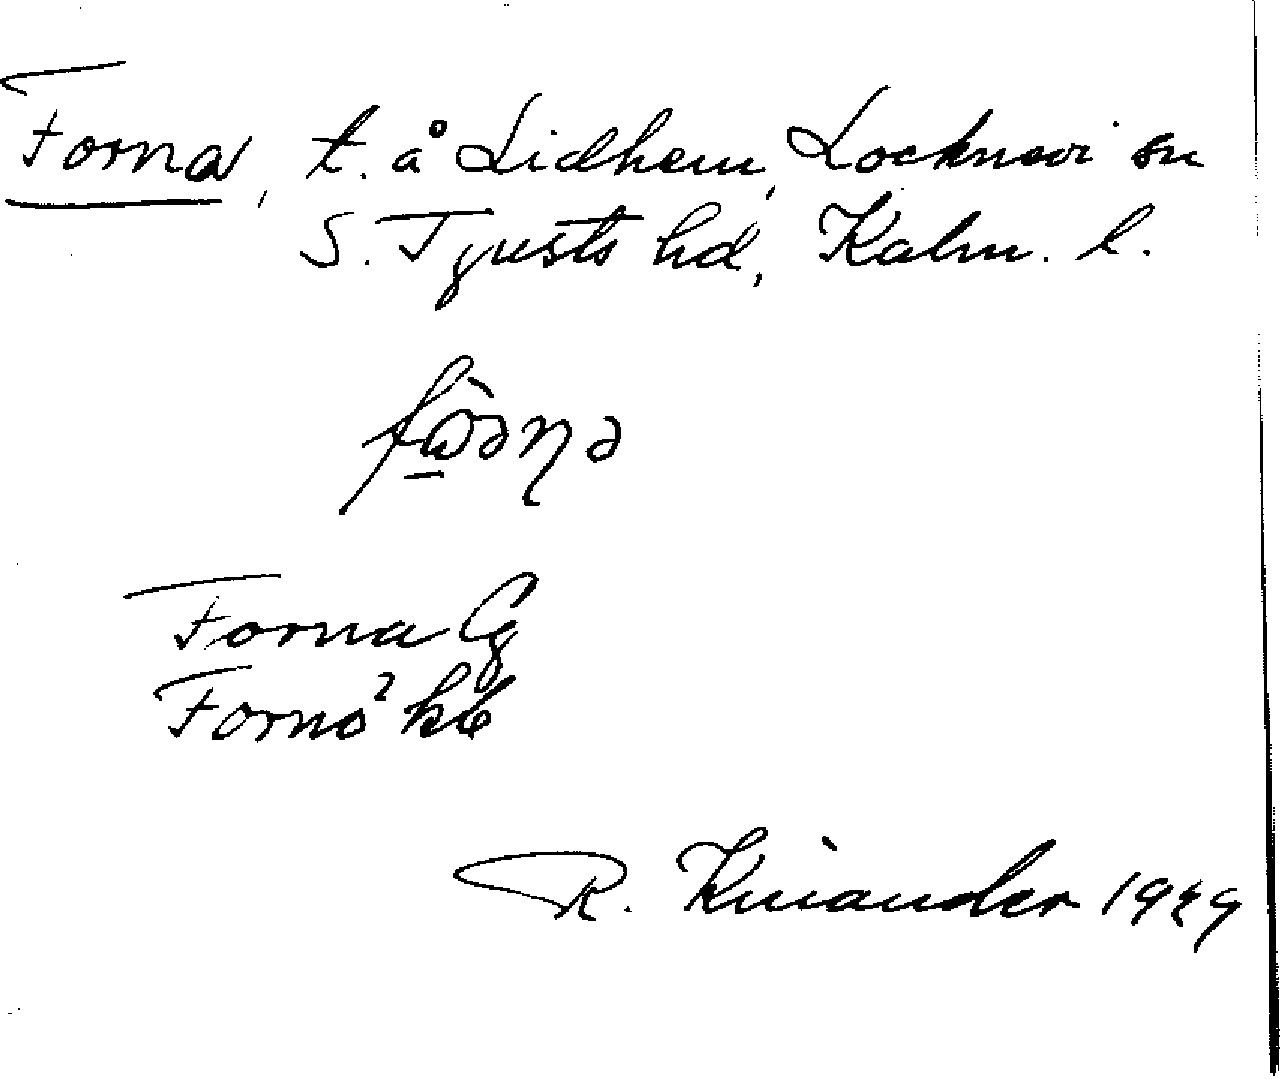 Forna, t. å Lidhem, Locknevi sn
S. Tjusts hd, Kalm. l.
Forna Cg
Fornö² kb
R. Kinander 1929